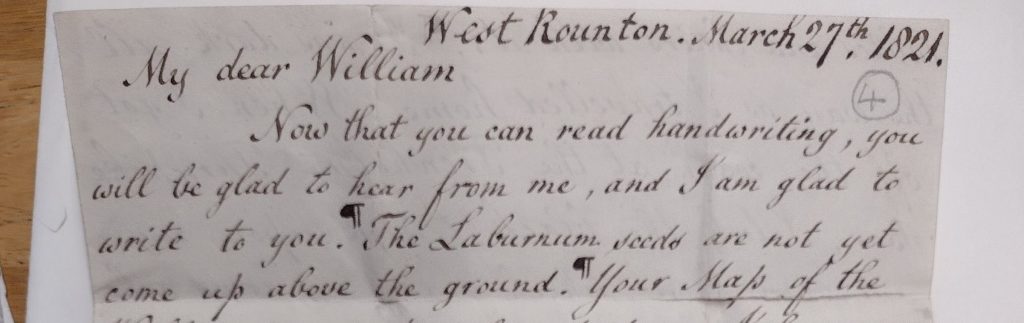 West Rounton. March 27th. 1821.
My dear William
④
Now that you can read handwriting, you
will be glad to hear from me, and I am glad to
write to you. ¶ The Laburnum seeds are not yet
come up above the ground. ¶ Your Map of the